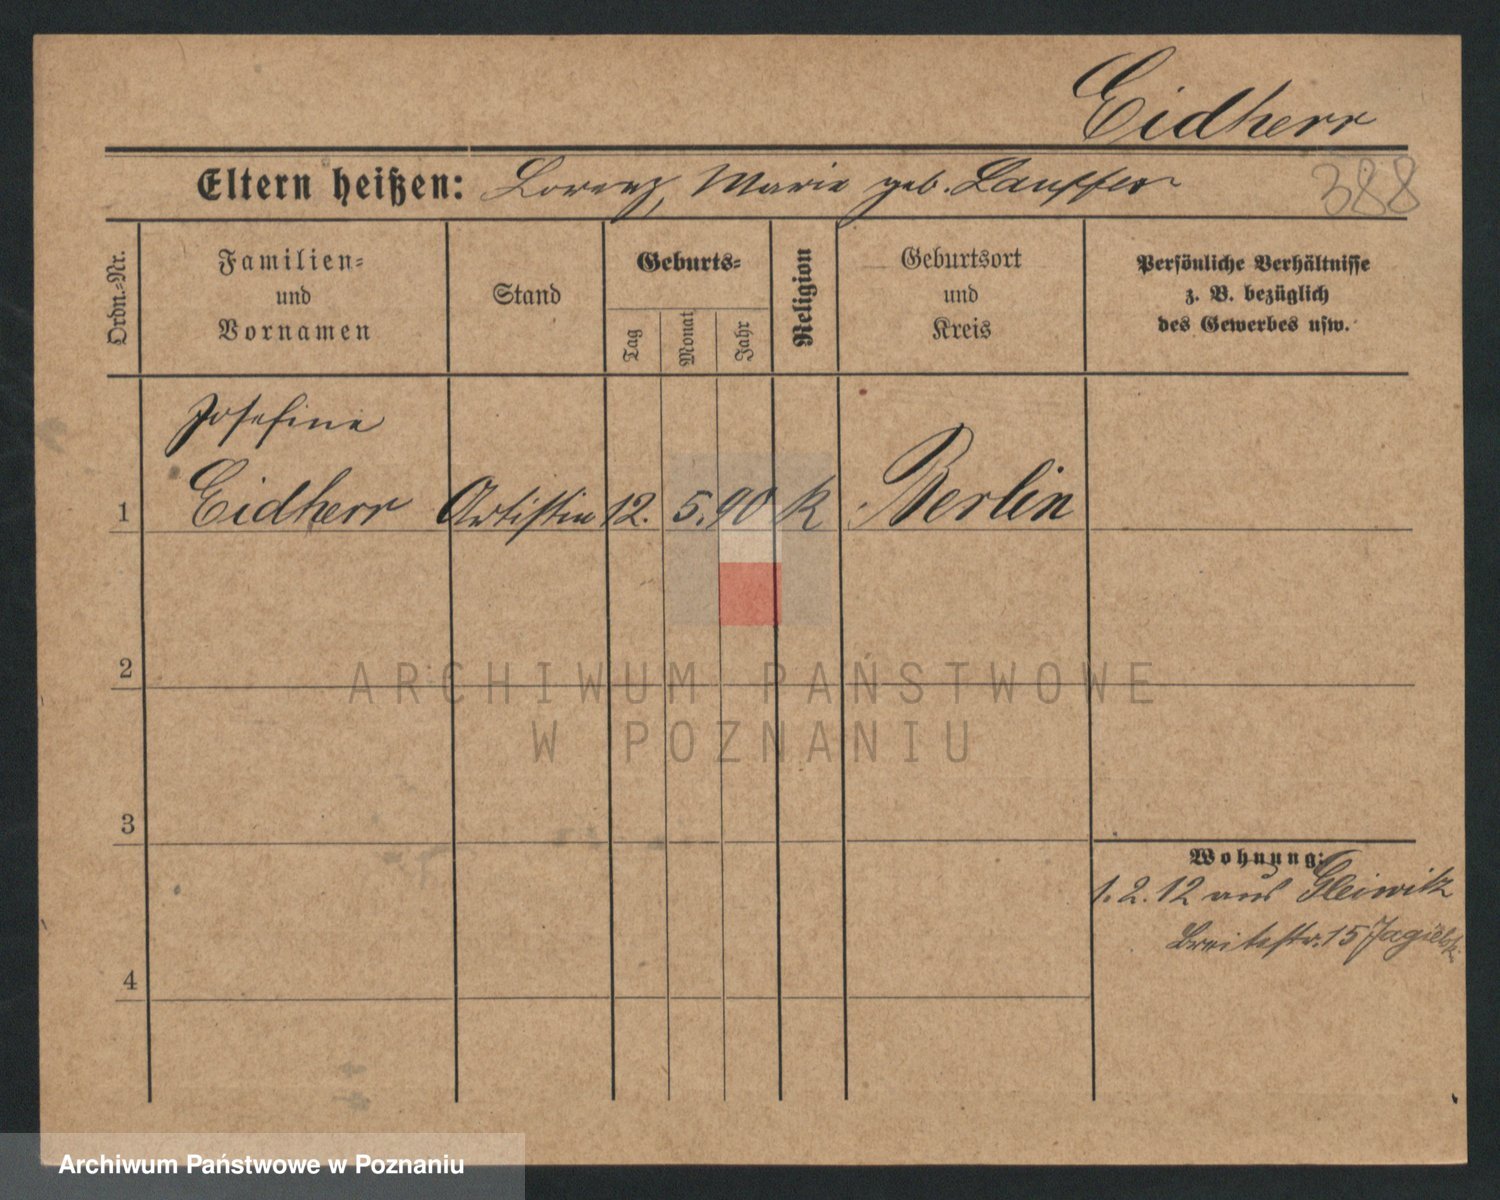 Eidherr
Eltern heißen: Lorenz, Marie geb. Lauffer
388
Ordn.-Nr.
Familien-
und
Vornamen
Stand
Geburts-
Tag
Monat
Jahr
Religion
Geburtsort
und
Kreis
Persönliche Verhältnisse
z. B. bezüglich
des Gewerbes usw.
Josefine
1 Eidherr Artistin 12. 5. 90 K Berlin
2
ARCHIWUM PAŃSTWOWE
W POZNANIU
3
Wohnung:
1. 2. 12 aus Gleiwitz
Breitestr. 15 Jagielski
4
Archiwum Państwowe w Poznaniu